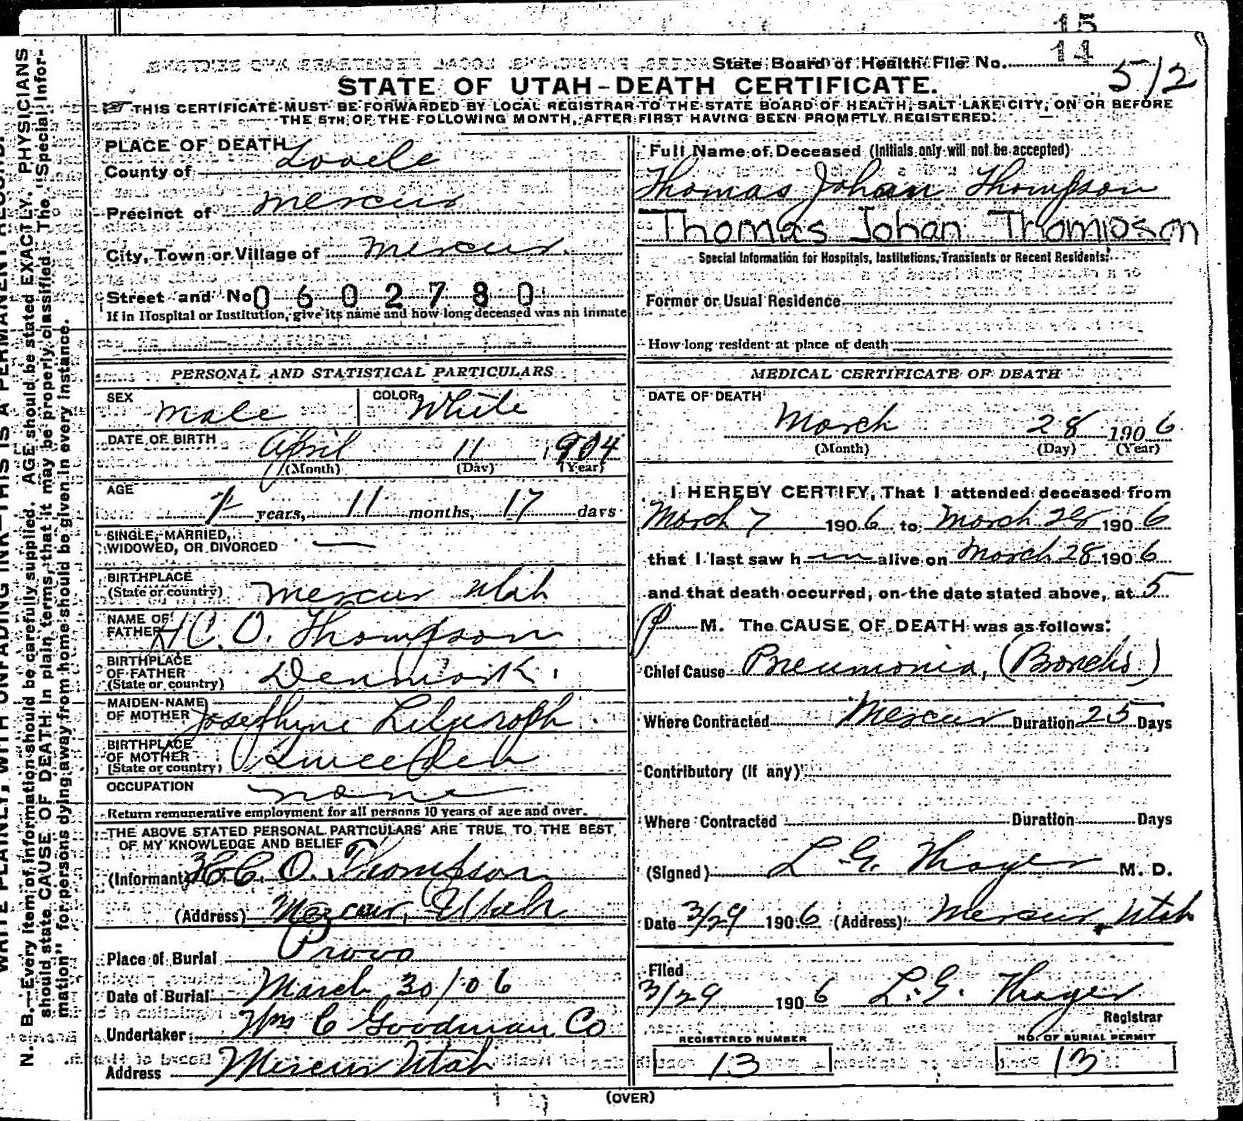 15
14
State Board of Health File No.
512
STATE OF UTAH-DEATH CERTIFICATE.
THIS CERTIFICATE MUST BE FORWARDED BY LOCAL REGISTRAR TO THE STATE BOARD OF HEALTH, SALT LAKE CITY, ON OR BEFORE
THE 5TH OF THE FOLLOWING MONTH, AFTER FIRST HAVING BEEN PROMPTLY REGISTERED.
WRITE PLAINLY, WITH UNFADING INK—THIS IS A PERMANENT RECORD.
N. B.—Every item of information should be carefully supplied. AGE should be stated EXACTLY. PHYSICIANS
should state CAUSE OF DEATH in plain terms, that it may be properly classified. The "Special Infor-
mation" for persons dying away from home should be given in every instance.
PLACE OF DEATH
County of Tooele
Precinct of Mercur
City, Town or Village of Mercur.
Street and No. 0602780
If in Hospital or Institution, give its name and how long deceased was an inmate
PERSONAL AND STATISTICAL PARTICULARS
SEX Male COLOR White
DATE OF BIRTH April 11 1904
(Month) (Day) (Year)
AGE 1 years, 11 months, 17 days
SINGLE, MARRIED,
WIDOWED, OR DIVORCED —
BIRTHPLACE
(State or country) Mercur Utah
NAME OF
FATHER H C. O. Thompson
BIRTHPLACE
OF FATHER
(State or country) Denmark.
MAIDEN NAME
OF MOTHER Josephine
BIRTHPLACE
OF MOTHER
(State or country) Sweeden
OCCUPATION none
Return remunerative employment for all persons 10 years of age and over.
THE ABOVE STATED PERSONAL PARTICULARS ARE TRUE TO THE BEST
OF MY KNOWLEDGE AND BELIEF
(Informant) H. C. O. Thompson
(Address) Mercur, Utah
Place of Burial Provo
Date of Burial March 30/06
Undertaker Wm C Goodman Co
Address Mercur Utah
Full Name of Deceased (Initials only will not be accepted)
Thomas Johan Thompson
Thomas Johan Thompson
Special Information for Hospitals, Institutions, Transients or Recent Residents:
Former or Usual Residence
How long resident at place of death
MEDICAL CERTIFICATE OF DEATH
DATE OF DEATH
March 28 1906
(Month) (Day) (Year)
I HEREBY CERTIFY, That I attended deceased from
March 7 1906 to March 28 1906
that I last saw him alive on March 28 1906
and that death occurred, on the date stated above, at 5
P M. The CAUSE OF DEATH was as follows:
Chief Cause Pneumonia, (Bronchi)
Where Contracted Mercur Duration 25 Days
Contributory (if any)
Where Contracted Duration Days
(Signed) L. G. Thayer M. D.
Date 3/29 1906 (Address) Mercur, Utah
Filed
3/29 1906 L. G. Thayer
Registrar
REGISTERED NUMBER
13
NO. OF BURIAL PERMIT
13
(OVER)